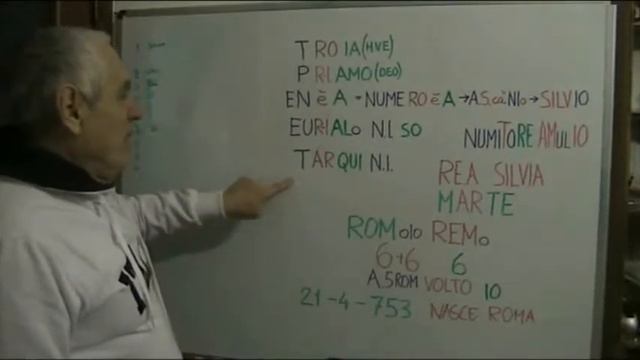 TROIA (HVE)
PRIAMO (DEO)
EN è A - NUME RO è A → A.S. cà NIO → SILVIO
EURIALO N.I. SO
NUMITORE AMULIO
TARQUI N.I.
REA SILVIA
MARTE
ROMolo REMo
6+6 6
A.SROM VOLTO IO
21-4-753 NASCE ROMA